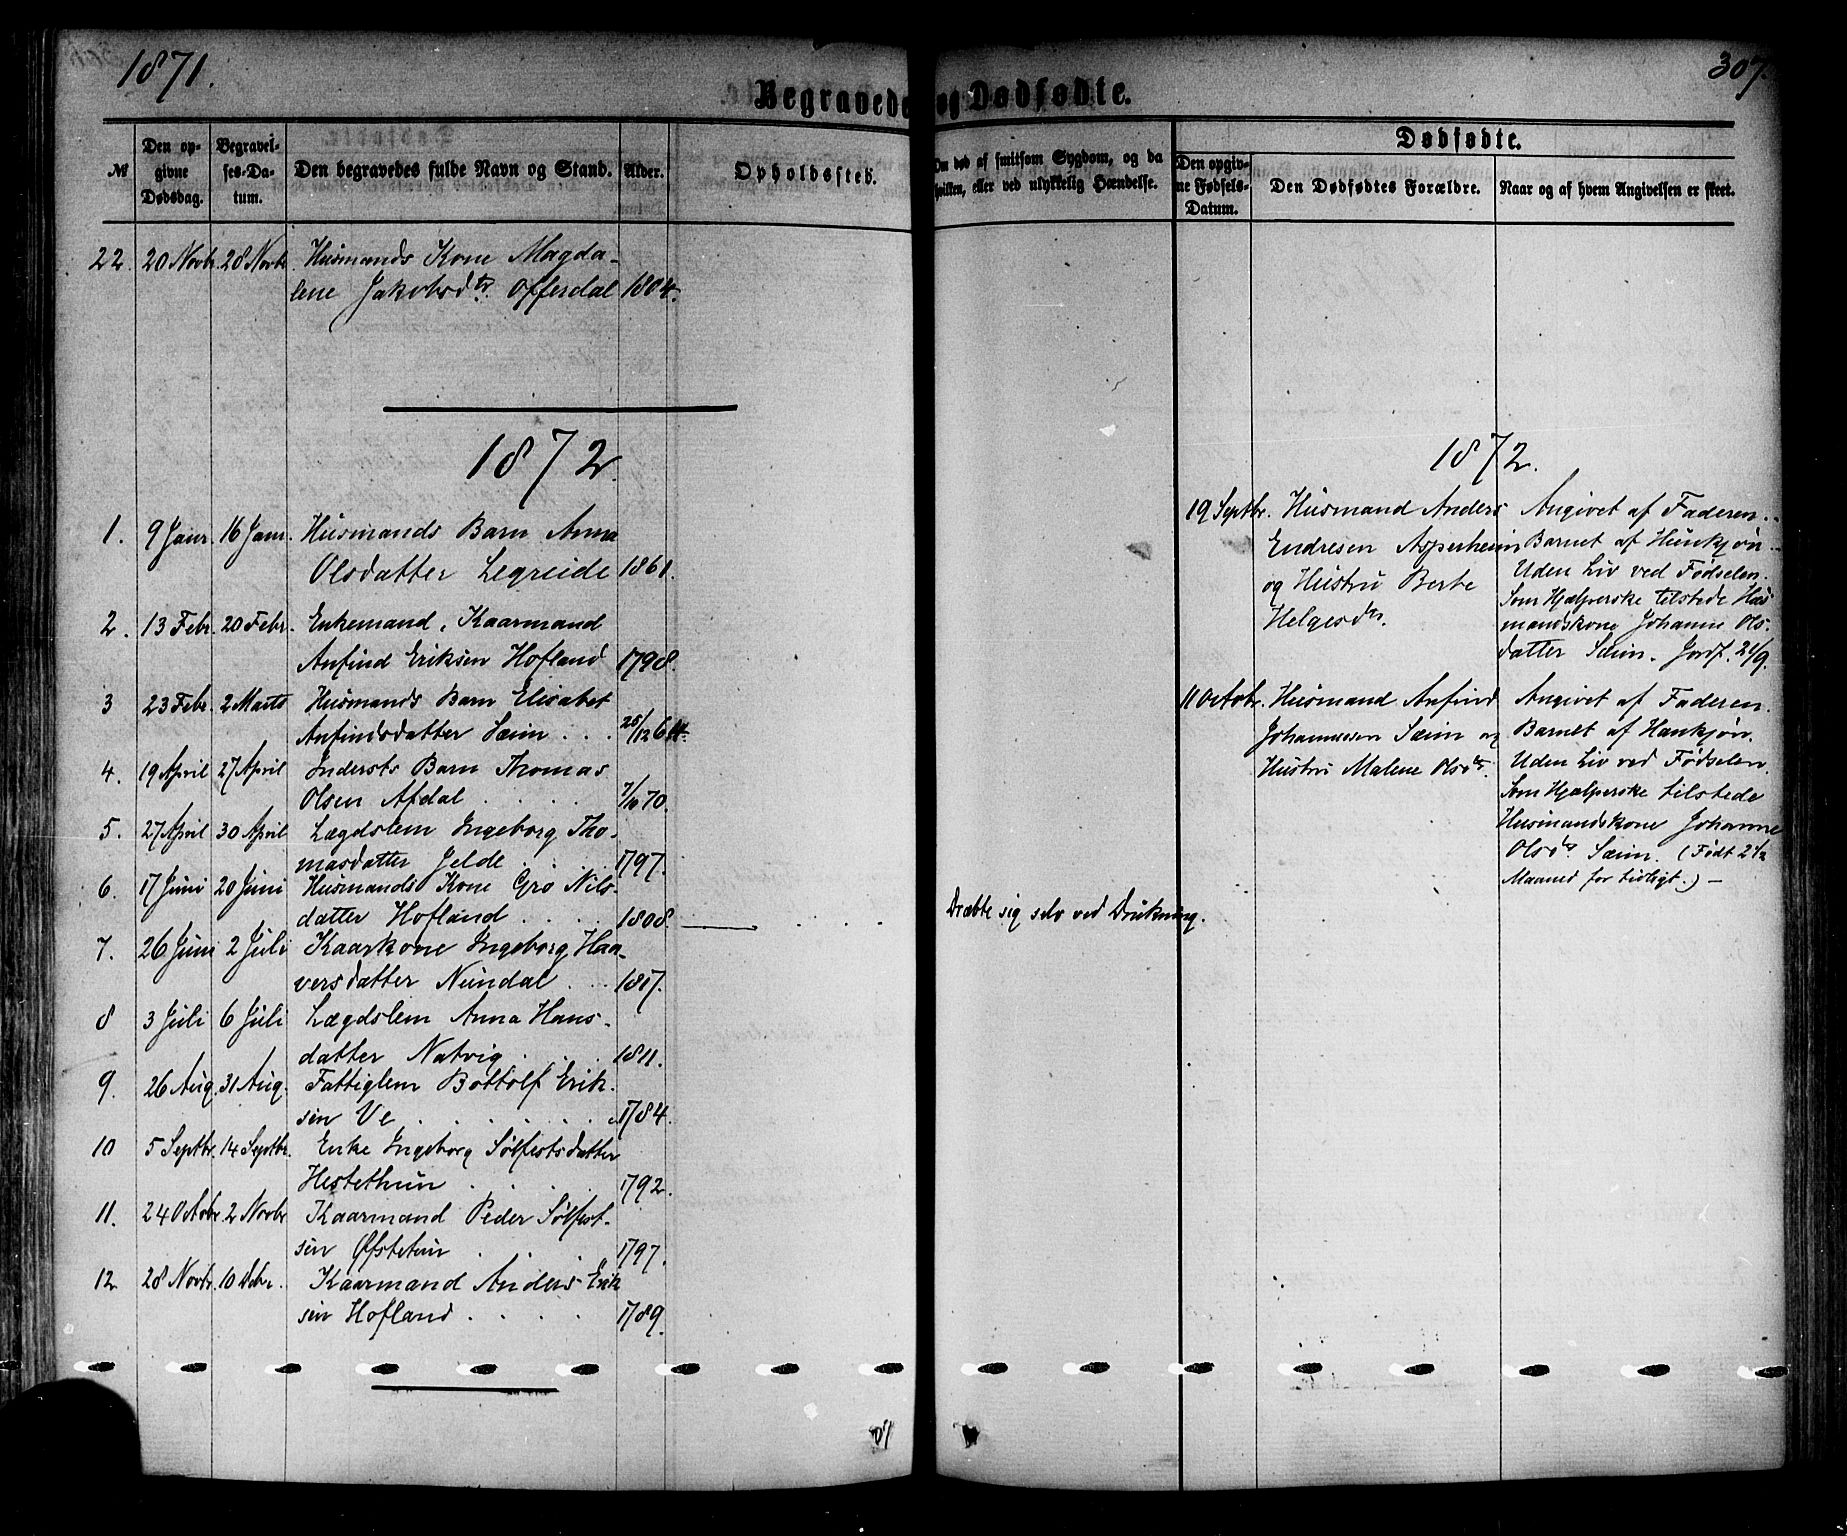 1871.
307.
Begravede og Dødfødte.
№
Den opgivne Dødsdag.
Begravelses-Datum.
Den begravedes fulde Navn og Stand.
Alder.
Opholdssted.
Om død af smitsom Sygdom, og da hvilken, eller ved ulykkelig Hændelse.
Dødfødte.
Den opgivne Fødsels-Datum.
Den Dødfødtes Forældre.
Naar og af hvem Angivelsen er skeet.
22. 20 Novbr. 28 Novbr. Husmands Kone Magda-
lene Jakobsdtr. Offerdal 1804.
1872.
1. 9 Janr. 16 Janr. Husmands Barn Anna
Olsdatter Legreide 1861.
2. 13 Febr. 20 Febr. Enkemand, Kaarmand
Anfind Eriksen Hofland 1798.
3 23 Febr. 2 Marts Husmands Barn Elisabet
Anfindsdatter Sæim . . .
4. 19 April 27 April Indersts Barn Thomas
Olsen Afdal . . . . 7/10 70.
5. 27 April 30 April Lægdslem Ingeborg Tho-
masdatter Jelde . . . 1797.
6. 17 Juni 20 Juni Husmands Kone Gro Nils-
datter Hofland . . . . 1808.
Dræbte sig selv ved Drukning.
7. 26 Juni 2 Juli Kaarkone Ingeborg Haa-
versdatter Nundal . . . 1817.
8 3 Juli 6 Juli Lægdslem Anna Hans-
datter Natvig . . . 1811.
9. 26 Aug. 31 Aug. Fattiglem Bottolf Erik-
sen Ve . . . . . . 1784.
10 5 Septbr. 14 Septbr. Enke Ingeborg Sølfestsdatter
Hestethun . . . . 1792.
11. 24 Octobr. 2 Novbr. Kaarmand Peder Sølfest-
sen Øfstetun . . . 1797.
12 28 Novbr. 10 Debr. Kaarmand Anders Erik
sen Hofland . . . . 1789.
1872.
19 Septbr. Husmand Anders
Endresen Asperheim
og Hustru Berte
Helgesdtr.
Angivet af Faderen.
Barnet af Hunkjøn.
Uden Liv ved Fødselen.
Som Hjælperske tilstede Hus
mandskone Johanne Ols-
datter Sæim. Jordf. 21/9.
11 Octobr. Husmand Anfind
Johannesen Sæim og
Hustru Malene Olsdtr.
Angivet af Faderen.
Barnet af Hankjøn.
Uden Liv ved Fødselen.
Som Hjælperske tilstede
Husmandskone Johanne
Olsdtr. Sæim. (Født 2 1/2
Maaned for tidligt.) —